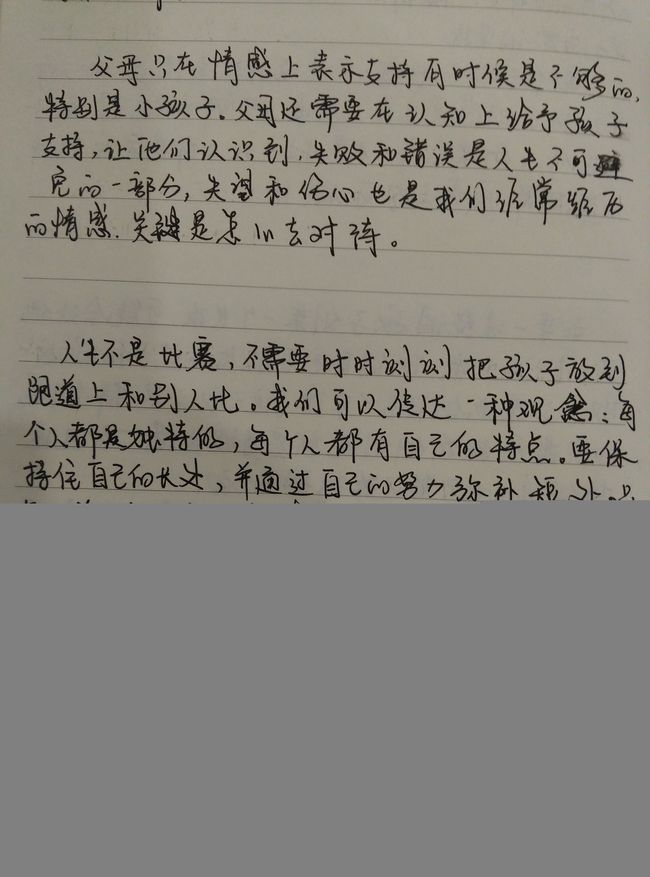 父母只在情感上表示支持有时候是不够的,
特别是小孩子。父母还需要在认知上给予孩子
支持,让他们认识到,失败和错误是人生不可避
免的一部分,失望和伤心也是我们经常经历
的情感.关键是怎么去对待。
人生不是比赛,不需要时时刻刻把孩子放到
跑道上和别人比。我们可以传达一种观念:每
个人都是独特的,每个人都有自己的特点。要保
持住自己的长处,并通过自己的努力弥补短处